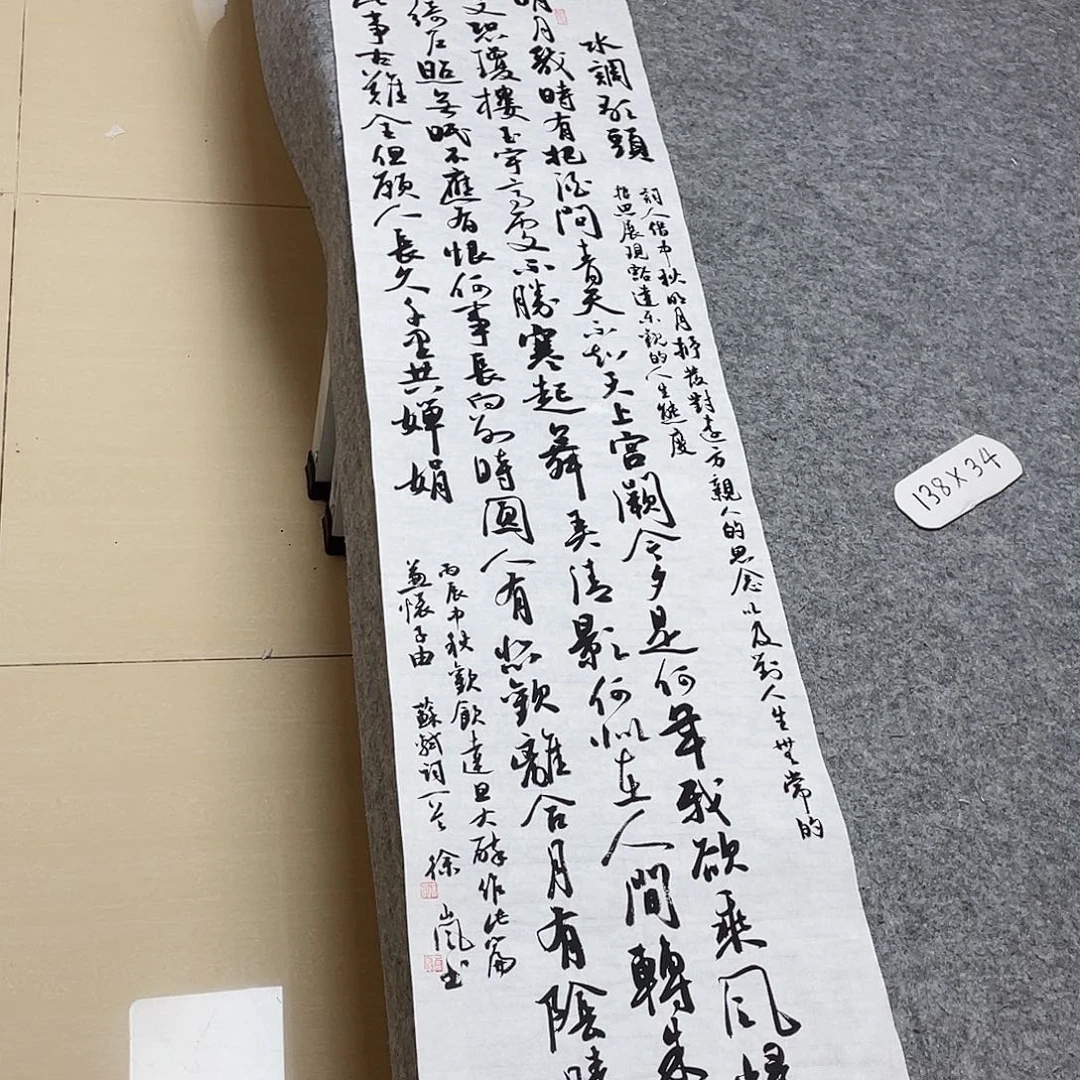 水調歌頭
詞人借中秋明月抒發對遠方親人的思念以及對人生無常的
哲思展現豁達樂觀的人生態度
明月幾時有把酒問青天不知天上宮闕今夕是何年我欲乘風歸
又恐瓊樓玉宇高處不勝寒起舞弄清影何似在人間轉朱
綺戶照無眠不應有恨何事長向別時圓人有悲歡離合月有陰晴
此事古難全但願人長久千里共嬋娟
丙辰中秋歡飲達旦大醉作此篇
兼懷子由 蘇軾詞一首 徐嵐書
138X34